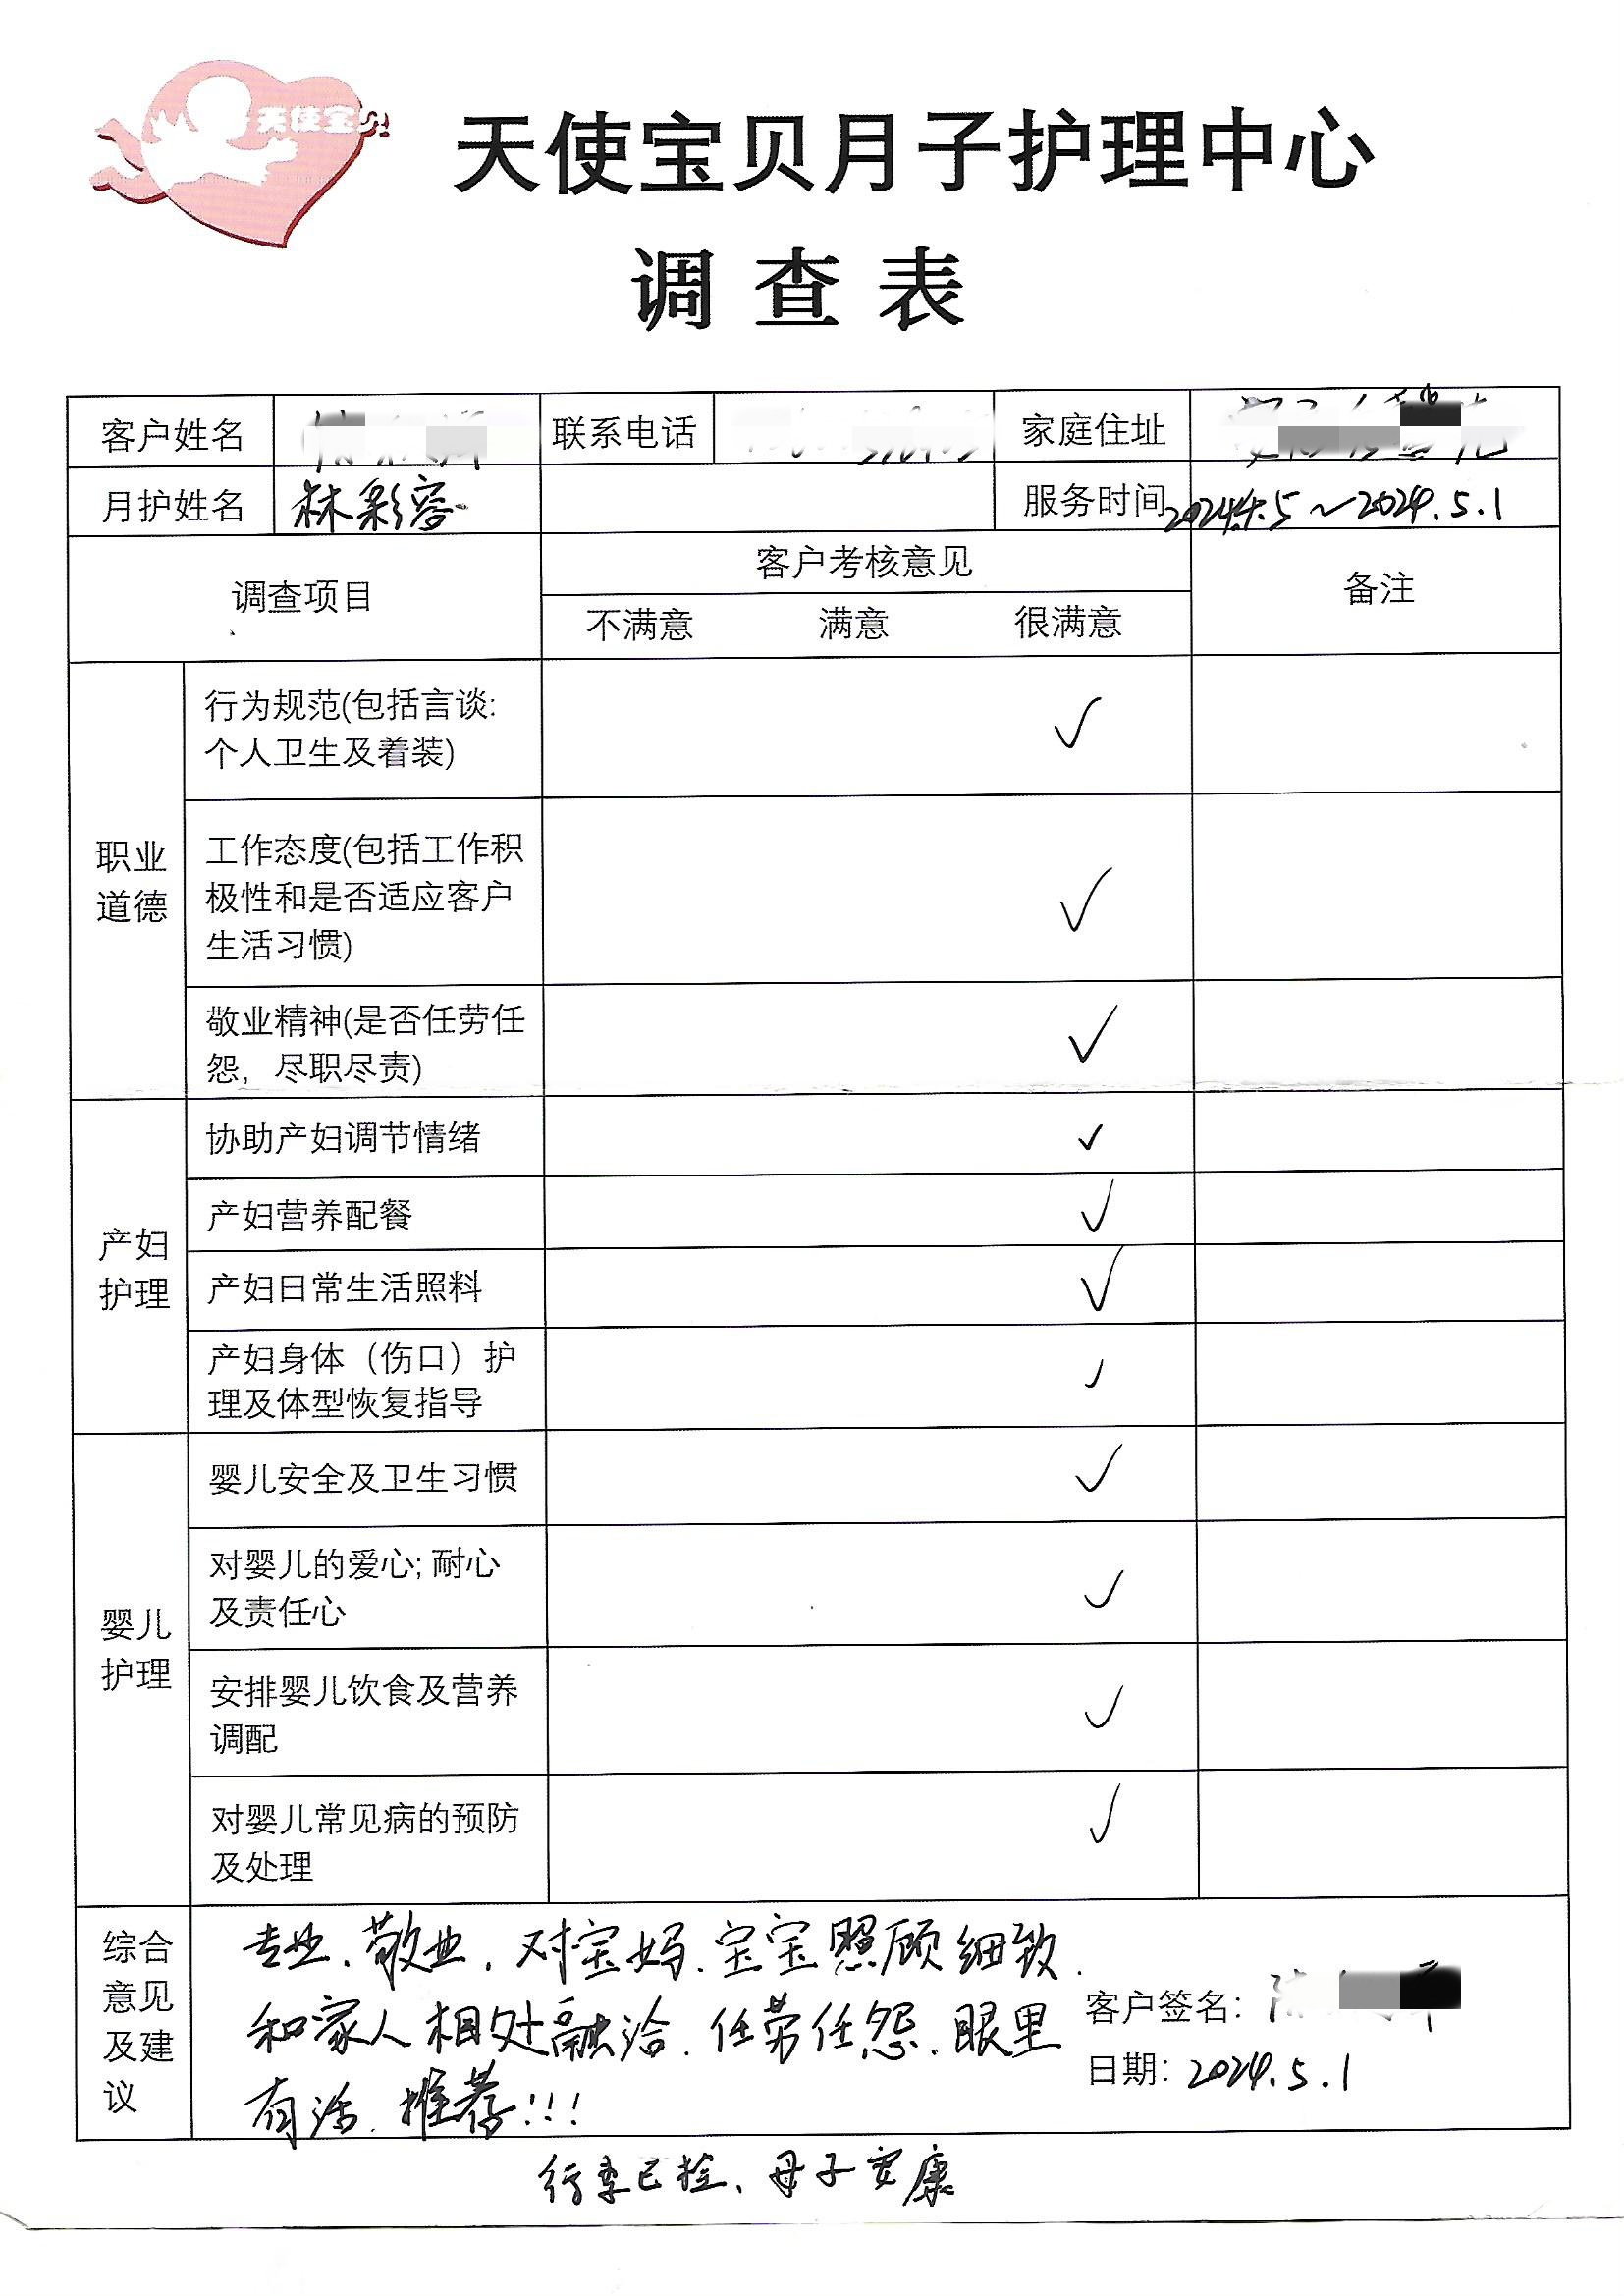 天使宝贝
天使宝贝月子护理中心
调查表
客户姓名 联系电话 家庭住址
月护姓名 林彩容 服务时间 2024.4.5~2024.5.1
调查项目 客户考核意见 备注
不满意 满意 很满意
职业
道德
行为规范(包括言谈:
个人卫生及着装) ✓
工作态度(包括工作积
极性和是否适应客户
生活习惯) ✓
敬业精神(是否任劳任
怨,尽职尽责) ✓
产妇
护理
协助产妇调节情绪 ✓
产妇营养配餐 ✓
产妇日常生活照料 ✓
产妇身体(伤口)护
理及体型恢复指导 ✓
婴儿
护理
婴儿安全及卫生习惯 ✓
对婴儿的爱心; 耐心
及责任心 ✓
安排婴儿饮食及营养
调配 ✓
对婴儿常见病的预防
及处理 ✓
综合
意见
及建
议
专业、敬业,对宝妈、宝宝照顾细致.
和家人相处融洽.任劳任怨.眼里
有活.推荐!!!
客户签名:
日期: 2024.5.1
行李已检、母子安康